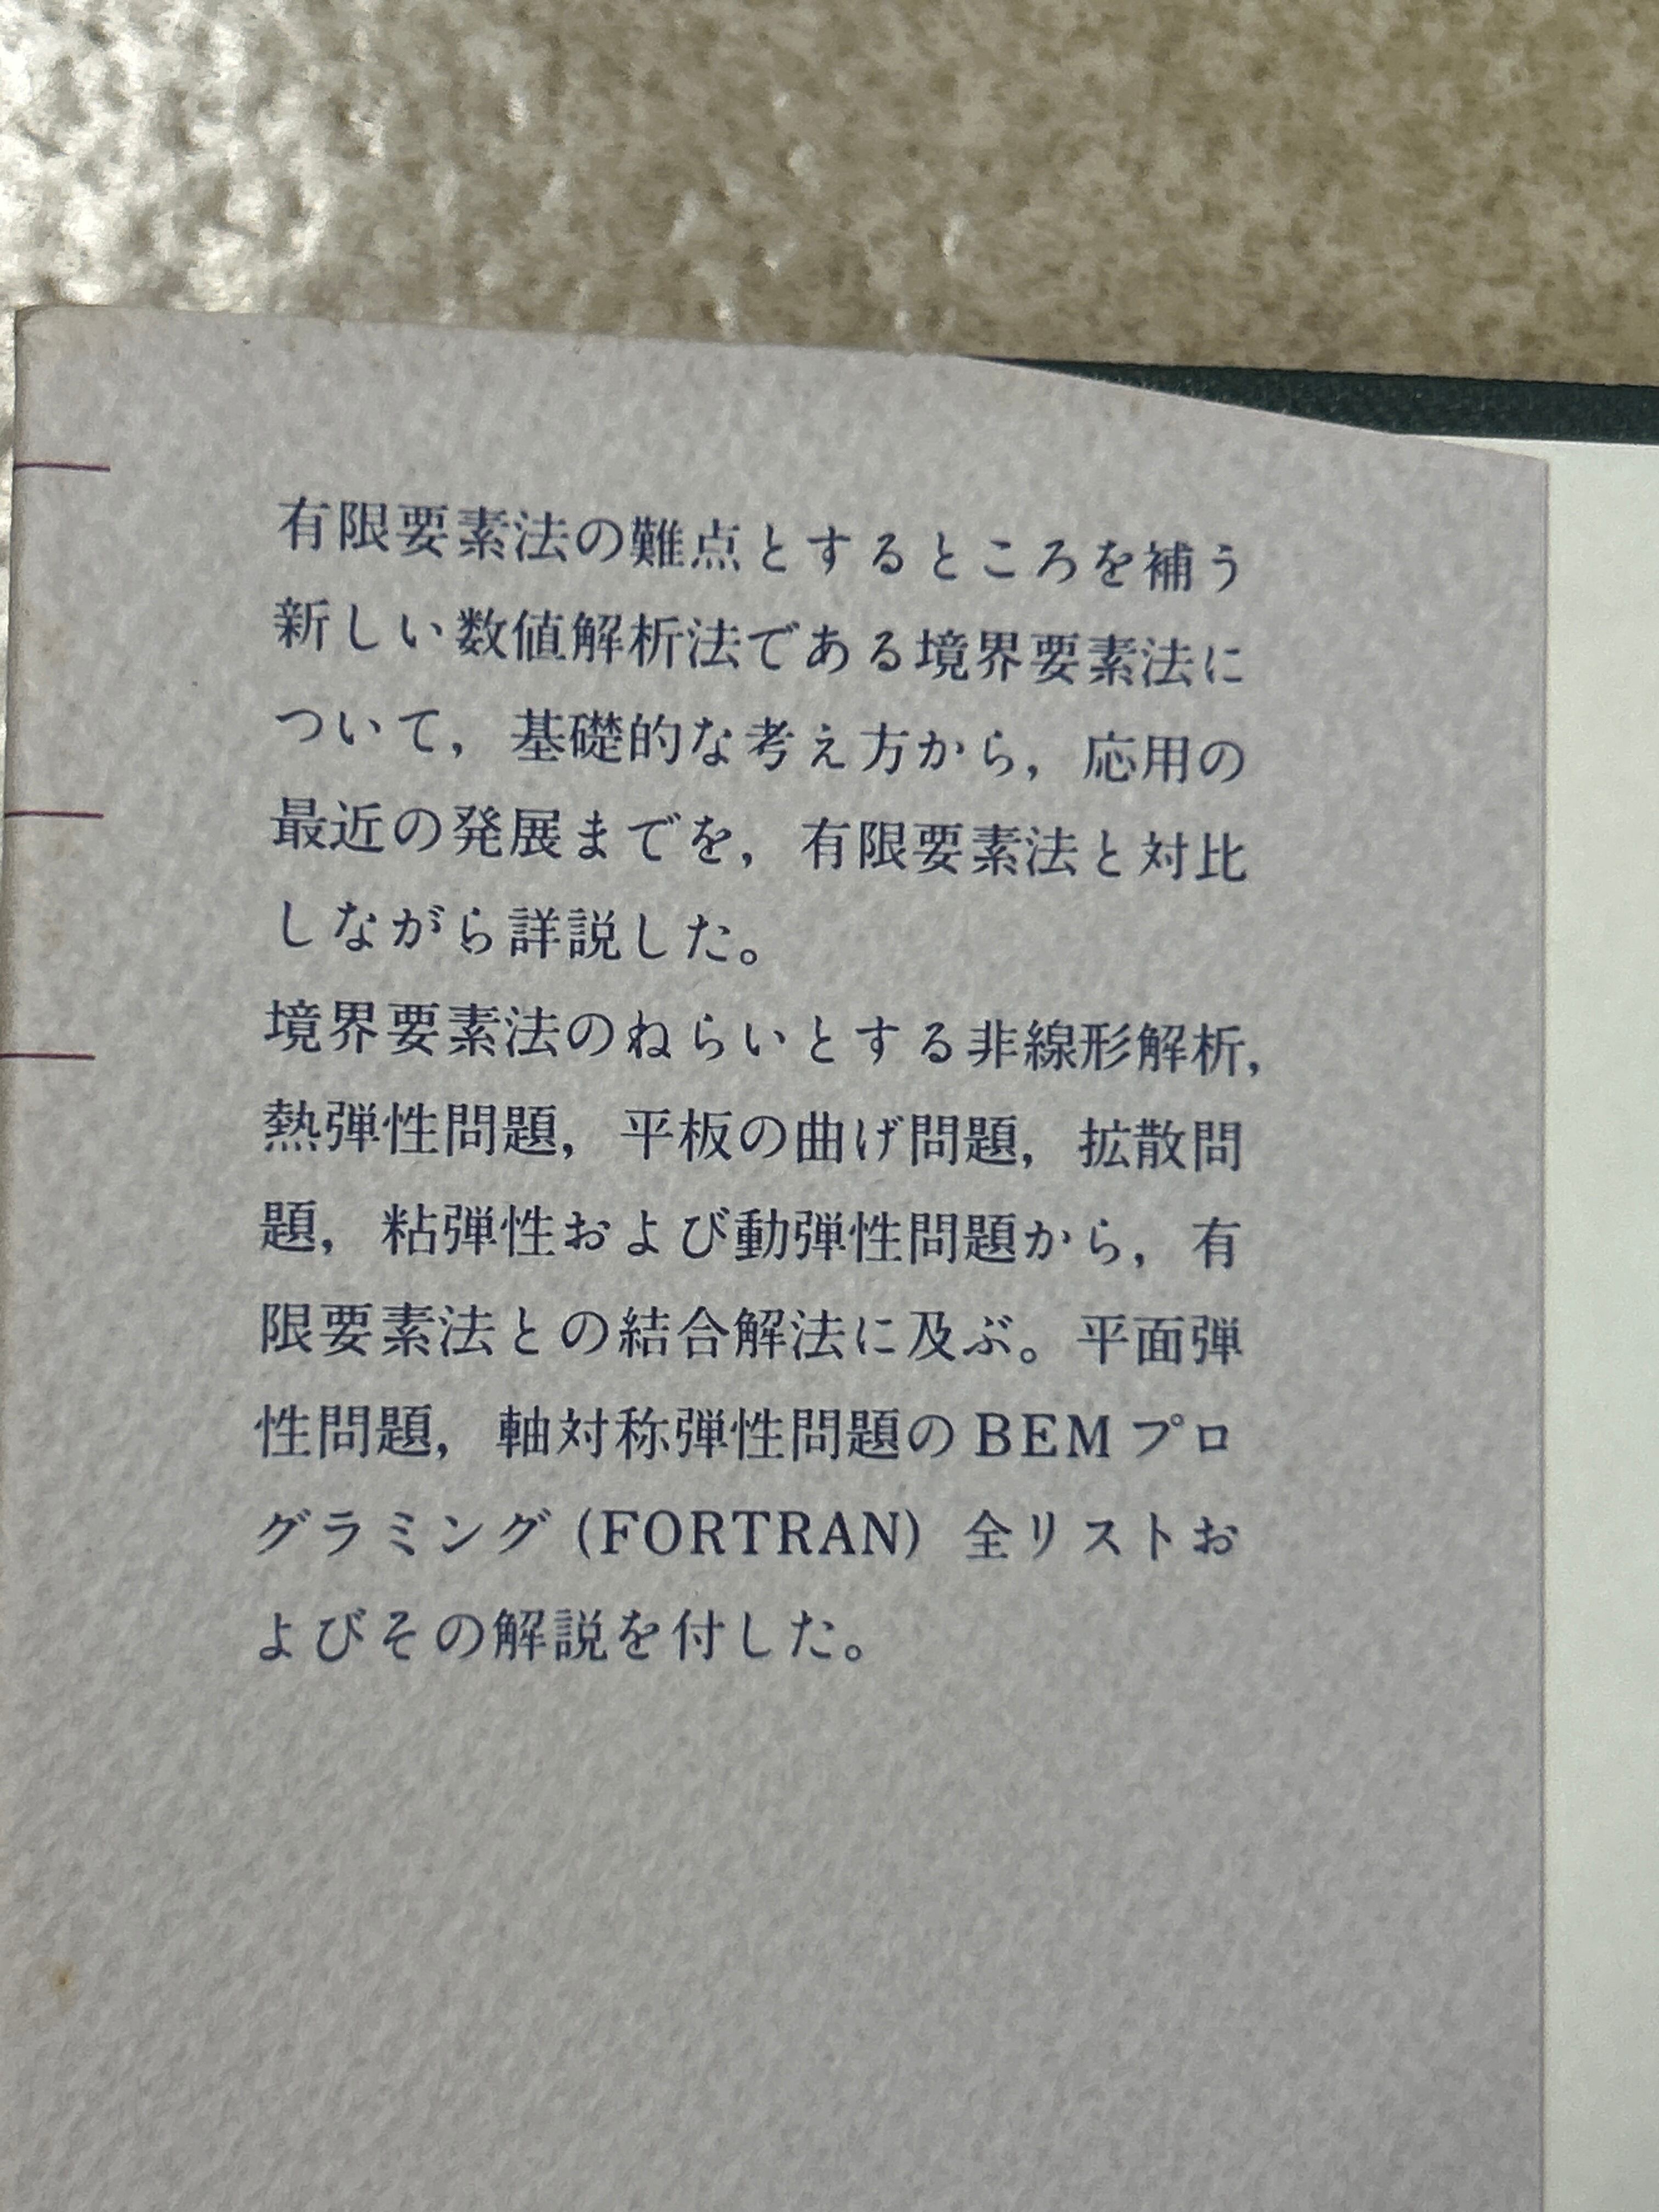 有限要素法の難点とするところを補う
新しい数値解析法である境界要素法に
ついて，基礎的な考え方から，応用の
最近の発展までを，有限要素法と対比
しながら詳説した。
境界要素法のねらいとする非線形解析，
熱弾性問題，平板の曲げ問題，拡散問
題，粘弾性および動弾性問題から，有
限要素法との結合解法に及ぶ。平面弾
性問題，軸対称弾性問題のBEMプロ
グラミング (FORTRAN) 全リストお
よびその解説を付した。